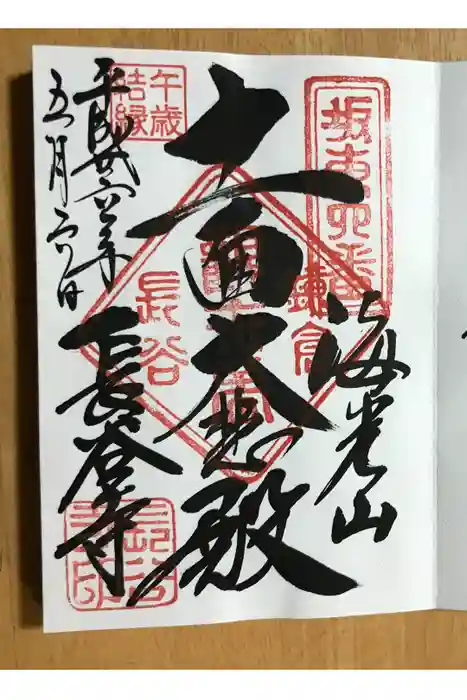 坂東四番
海光山
鎌倉
十一面大悲殿
長谷
午歳
結縁
平成廿六年
五月
長谷寺
長谷
寺印